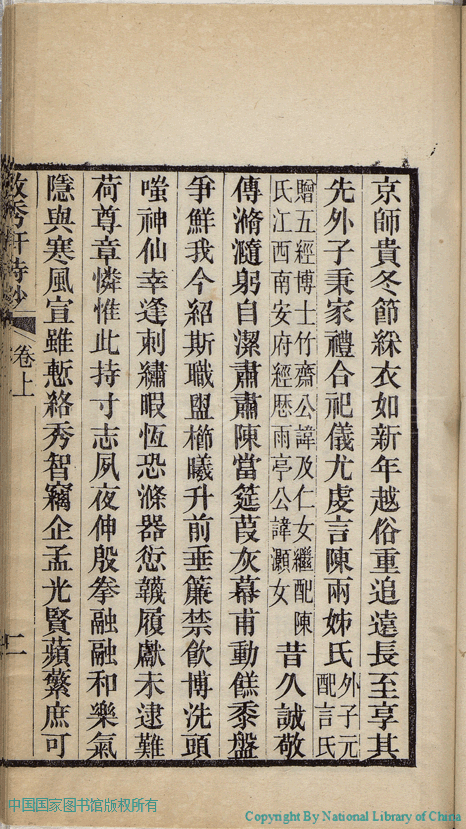 京師貴冬節綵衣如新年越俗重追遠長至享其
先外子秉家禮合祀儀尤虔言陳兩姊氏外子元配言氏
贈五經博士竹齋公諱及仁女繼配陳氏江西南安府經歷雨亭公諱灝女昔久誠敬
傳滫瀡躬自潔肅肅陳當筵葭灰幕甫動餻黍盤
爭鮮我今紹斯職盥櫛曦升前垂簾禁飲博洗頭
嗤神仙幸逢刺繡暇恆恐滌器愆韈履獻未逮難
荷尊章憐惟此持寸志夙夜伸殷拳融融和樂氣
隱與寒風宣雖慙絡秀智竊企孟光賢蘋蘩庶可
敩秀軒詩鈔
卷上
二
中国国家图书馆版权所有
Copyright By National Library of China